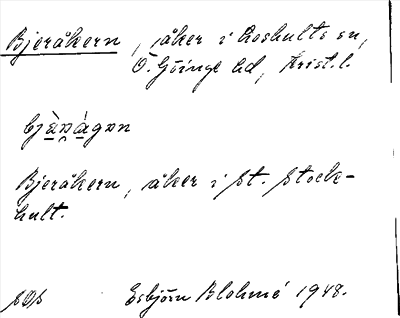 Bjeråkern, åker i Loshults sn,
Ö. Göinge hd, Krist. l.
Bjeråkern, åker i St. Stock-
hult.
Esbjörn Blohmé 1948.